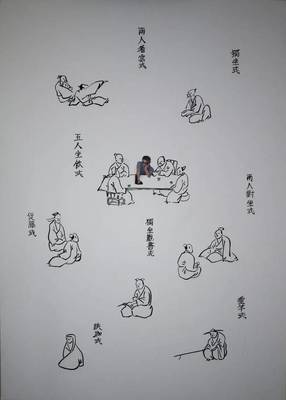 獨坐式
兩人看雲式
五人坐飲式
兩人對坐式
促膝式
獨坐觀書式
垂竿式
趺跏式